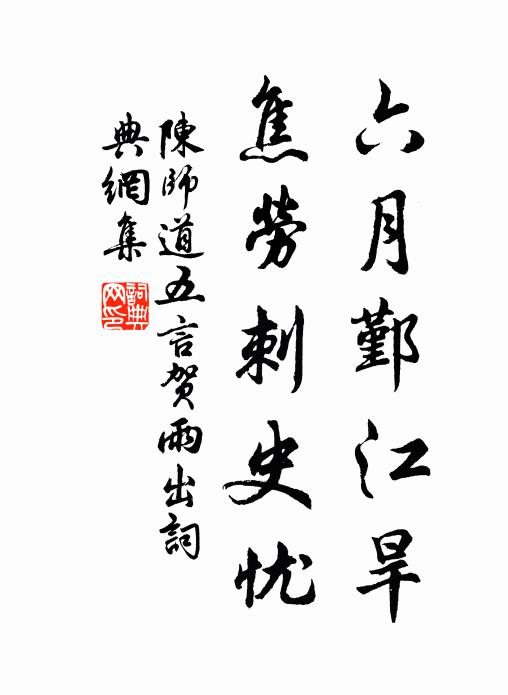 六月鄞江旱
焦勞刺史忧
陳師道五言賀雨出詞
典網集
詞典網印